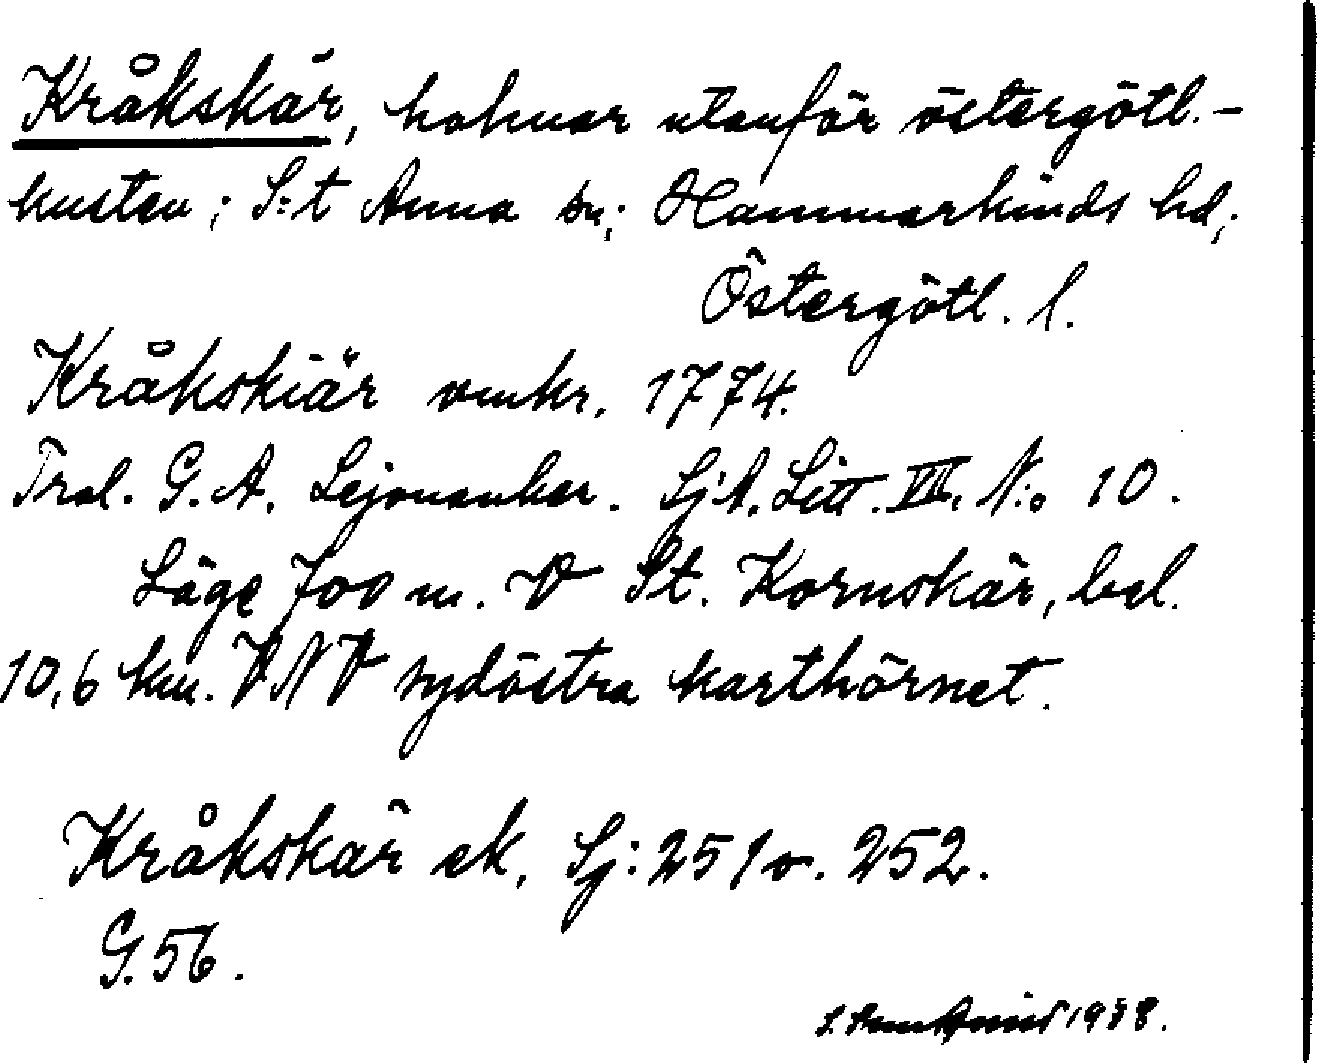 Kråkskär, holmar utanför östergötl.-
kusten; S:t Anna sn; Hammarkinds hd;
Östergötl. l.
Kråkskiär omkr. 1774.
Trol. G. A. Lejonanker. Sj.A. Litt. VII. N:o 10.
Läge 700 m. V St. Kornskär, bel.
10,6 km. VNV sydöstra karthörnet.
Kråkskär ek. Sj: 251 o. 252.
G. 56.